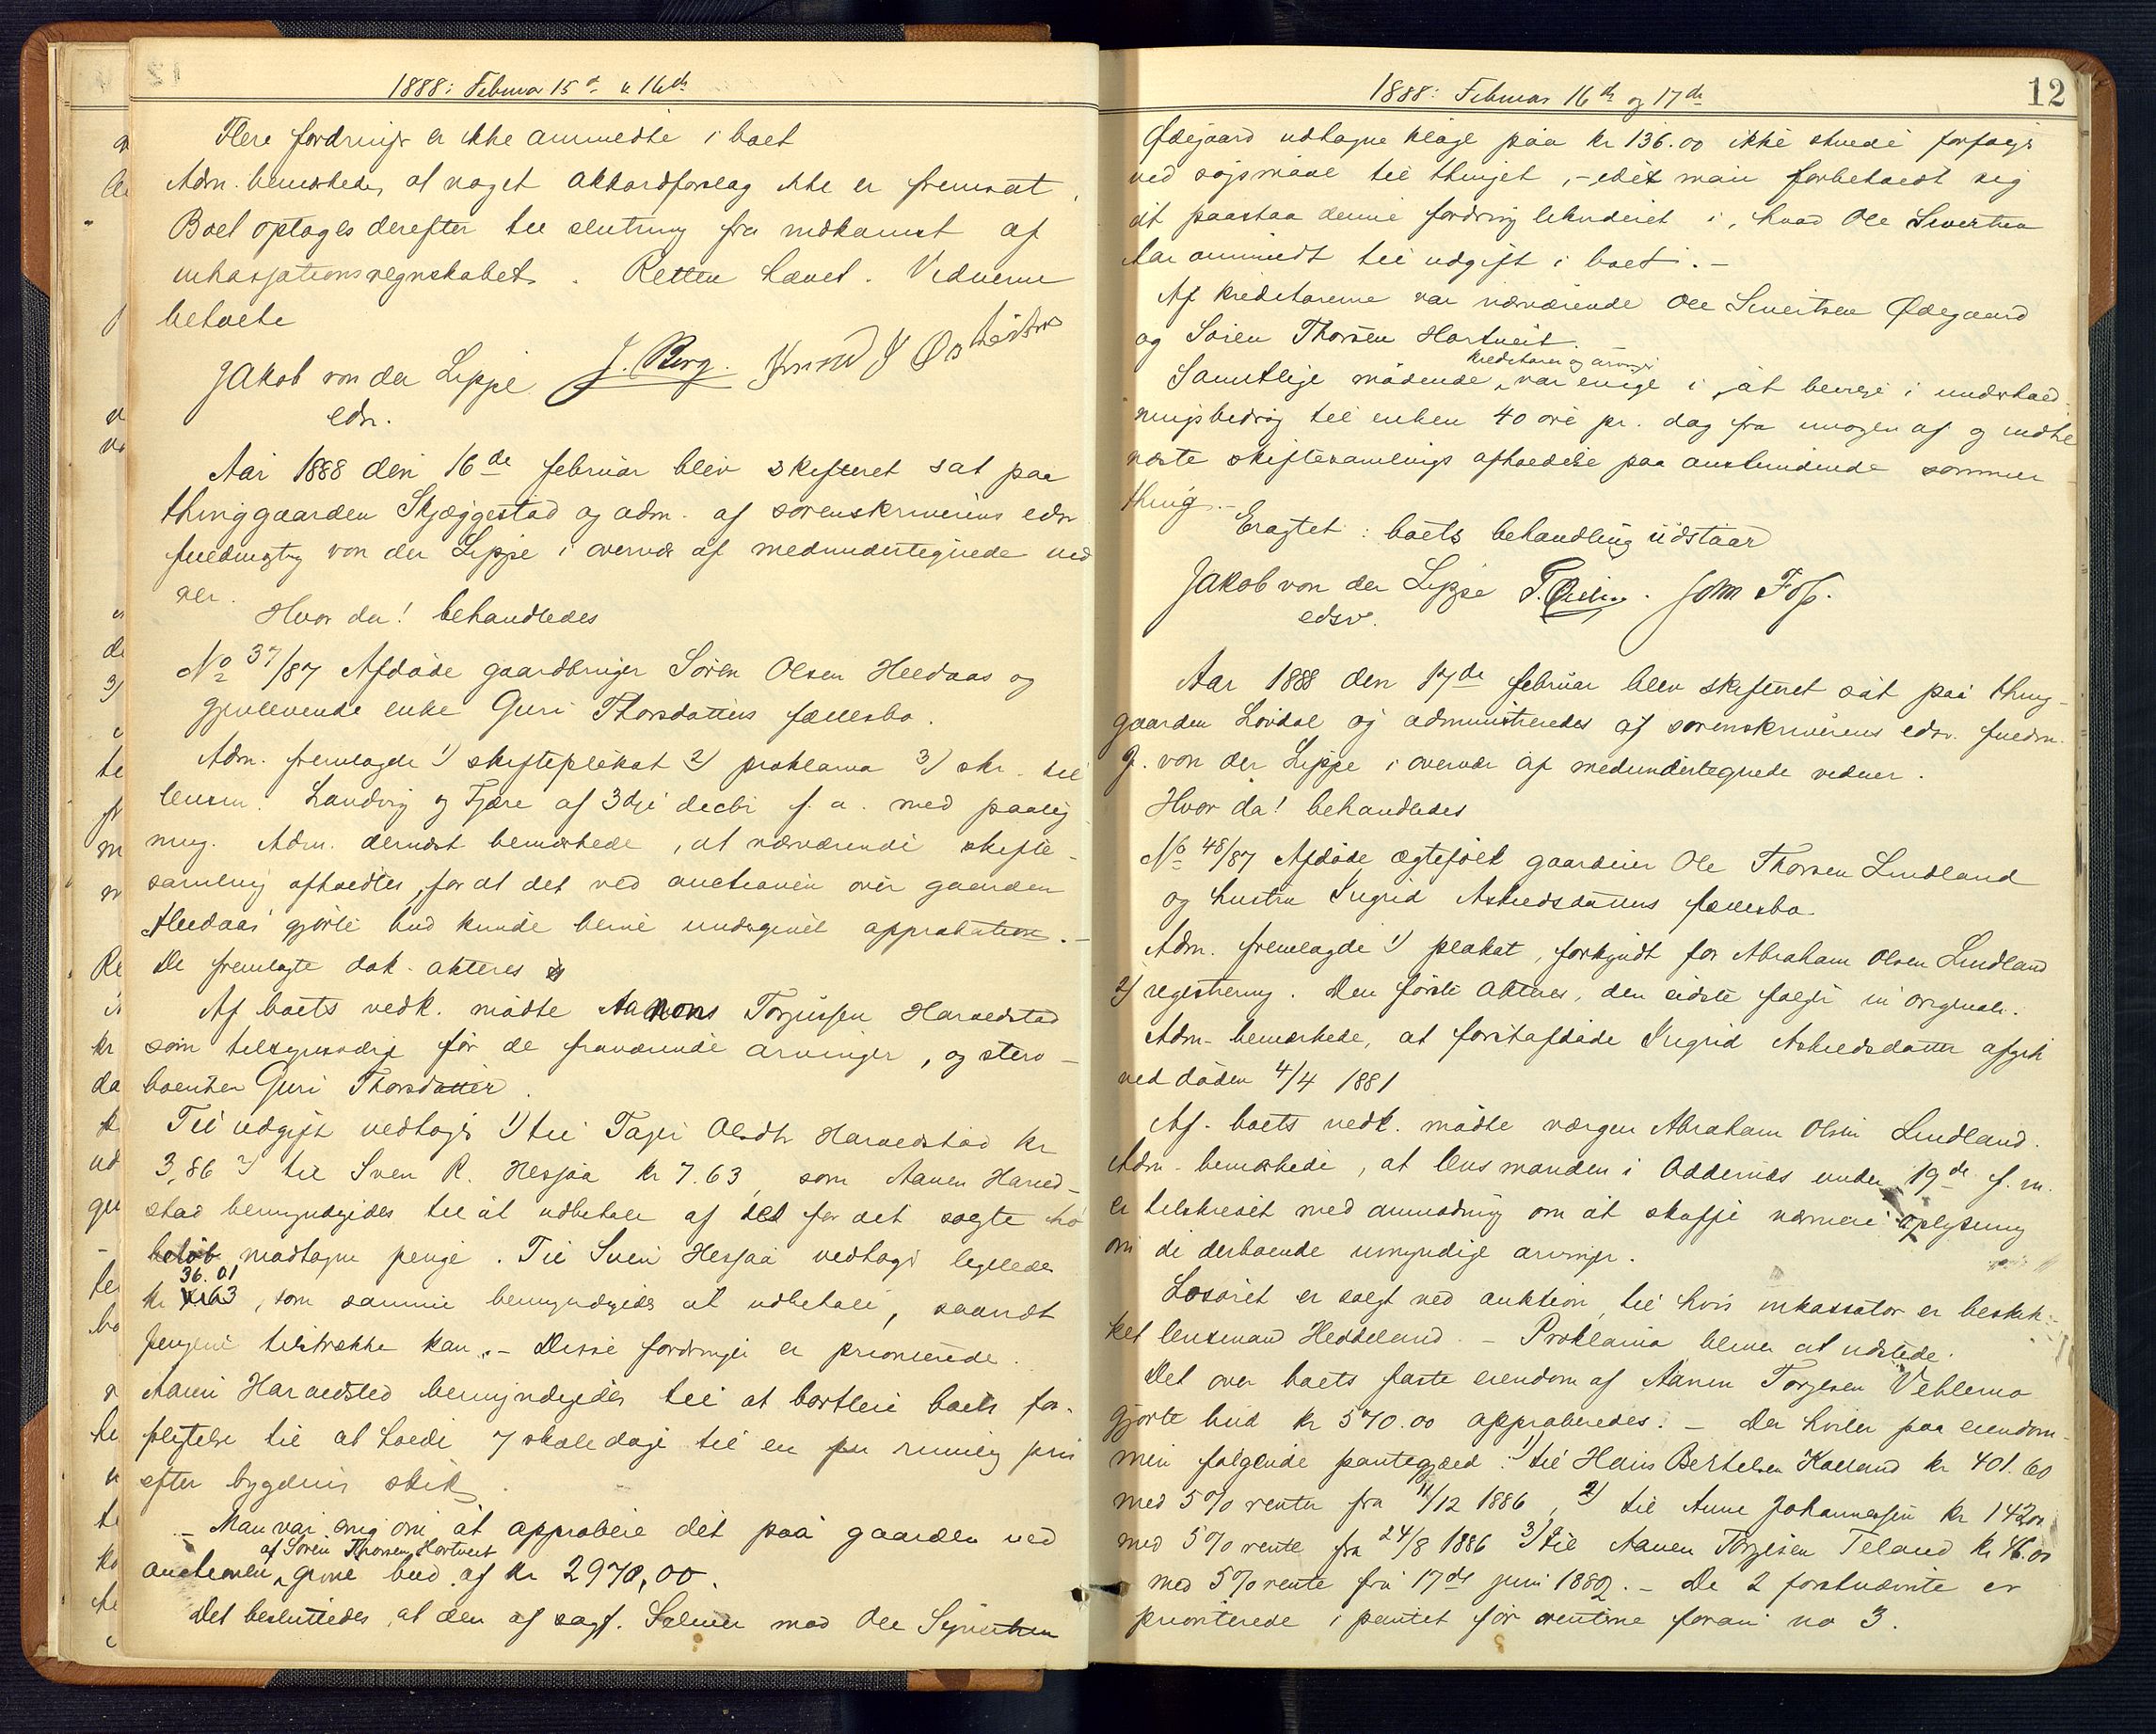 1888: Februar 15de & 16de
Flere fordringer er ikke anmeldte i boet
Adm. bemerkede, at noget akkordforslag ikke er fremsat.
Boet optages derefter til slutning fra indkomst af
inkassationsregnskabet. Retten hævet. Vidnerne
betalte
Jakob von der Lippe J. Berg.
edsv.
Aar 1888 den 16de februar blev skifteret sat paa
thinggaarden Skjæggestad og adm. af sorenskriverens edsv
fuldmægtig von der Lippe i overvær af medundertegnede vid
ner.
Hvor da! behandledes
No 37/87 Afdøde gaardbruger Søren Olsen Heldaas og
gjenlevende enke Guri Thorsdatters fællesbo.
Adm. fremlagde 1) skifteplakat 2) proklama 3) skr. til
lensm. Landvig og Fjære af 3dje decbr f. a. med paateg
ning. Adm. dernæst bemærkede, at nærværende skifte-
samling afholdtes, for at det ved auctionen over gaarden
Heldaas gjorte bud kunde blive undergivet approbation. -
De fremlagte dok. akteres
Af boets vedk. mødte Aanons Torjussen Haraldstad
som tilsynsværge for de fraværende arvinger, og sterv-
boenken Guri Thorsdatter.
Til udgift vedtages 1) til Tarjer Olsdtr Haraldstad kr
3,86 2) til Sven R. Hesjaa kr 7.63, som Aanen Harald-
stad bemyndigedes til at udbetale af det for det solgte hø
beløb modtagne penge. Til Sven Hesjaa vedtages ligeledes
36.01
kr , som samme bemyndigedes at udbetale, saavidt
pengene tilstrække kan. - Disse fordringer er prioriterede.
Aanen Haraldsted bemyndigedes til at bortleie boets for-
pligtelse til at holde 7 skoledage til en rimelig pris
efter bygdens skik.
- Man var enig om at approbere det paa gaarden ved
af Søren Thorsen Hortveit
auctionen givne bud af kr 2970,00.
Det besluttedes, at den af sagf. Selmer mod Ole Syvertsen
1888: Februar 16de og 17de
12
Ødegaard udtagne klage paa kr 136.00 ikke skulde forfølges
ved søgsmaal til thinget, - idet man forbeholdt sig
at paastaa denne fordring likvideret i, hvad Ole Sivertsen
har anmeldt til udgift i boet. -
Af kreditorerne var nærværende Ole Sivertsen Ødegaard
og Søren Thorsen Hortveit.
kreditorer og arvinger
Samtlige mødende var enige i at bevilge i underhold-
ningsbidrag til enken 40 øre pr. dag fra imorgen af og indtil
næste skiftesamlings afholdelse paa anstundende sommer
thing. -
Eragtet: boets behandling udstaar
Jakob von der Lippe
edsv.
Aar 1888 den 17de februar blev skifteret sat paa thing-
gaarden Lovdal og administreredes af sorenskriverens edsv. fuldm.
J. von der Lippe i overvær af medundertegnede vidner.
Hvor da! behandledes
No 48/87 Afdøde ægtefolk gaardeier Ole Thorsen Lindland
og hustru Ingrid Askeldsdatters fællesbo.
Adm. fremlagde 1) plakat, forkyndt for Abraham Olsen Lindland
2) registrering. Den første akteres, den sidste følger in originali.
Adm. bemærkede, at førstafdøde Ingrid Askeldsdatter afgik
ved døden 4/4 1881
Af boets vedk. mødte værgen Abraham Olsen Lindland.
Adm. bemærkede, at lensmanden i Oddernæs under 19de f. m.
er tilskrevet med anmodning om at skaffe nærmere oplysning
om de derboende umyndige arvinger.
Løsøret er solgt ved auktion, til hvis inkassator er beskik-
ket lensmand Heddeland. - Proklama bliver at udstede.
Det over boets faste eiendom af Aanen Torjesen Vehlemo
gjorte bud kr 570.00 approberedes. - Der hviler paa eiendom-
men følgende pantegjæld: 1) til Hans Bertelsen Kalland kr 401.60
med 5% renter fra 11/12 1886, 2) til Anne Johannessen kr 142.00
med 5% rente fra 24/8 1886 3) til Aanen Torjesen Teland kr 46.00
med 5% rente fra 17de juni 1882. - De 2 førstnævnte er
prioriterede i pantet for renterne foran no 3.